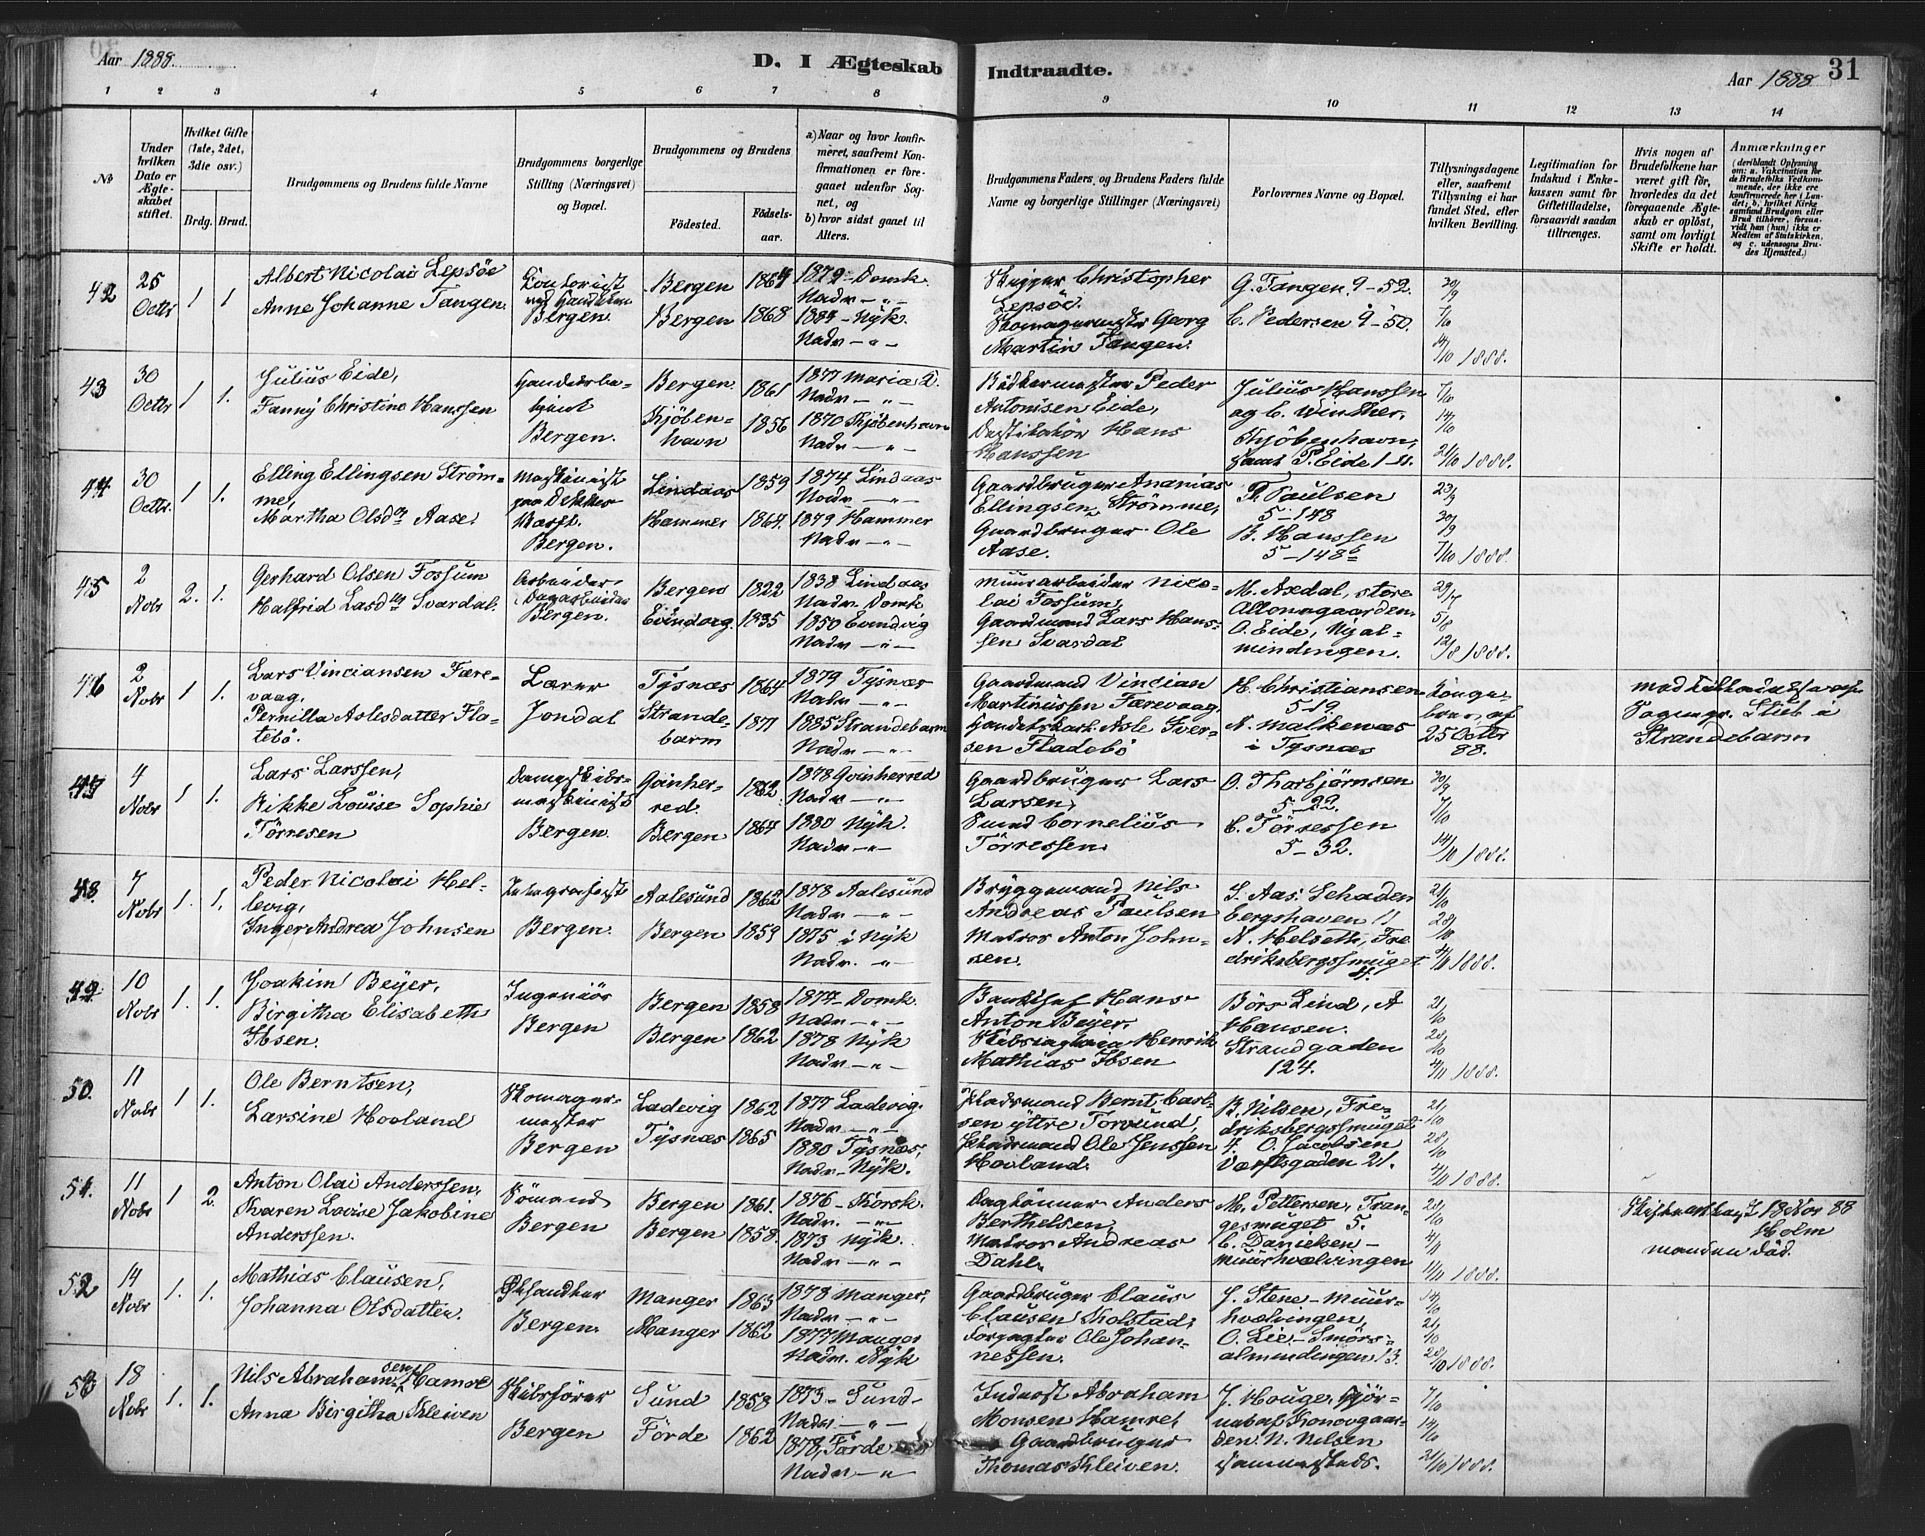 Aar 1888.
D. I Ægteskab Indtraadte.
Aar 1888
31
1 2 3 4 5 6 7 8 9 10 11 12 13 14
No
Under hvilken Dato er Ægteskabet stiftet.
Hvilket Gifte (1ste, 2det, 3die osv.)
Brdg. Brud.
Brudgommens og Brudens fulde Navne
Brudgommens borgerlige Stilling (Næringsvei) og Bopæl.
Brudgommens og Brudens
Födested.
Födsels-aar.
a) Naar og hvor konfirmeret, saafremt Konfirmationen er foregaaet udenfor Sognet, og
b) hvor sidst gaaet til Alters.
Brudgommens Faders og Brudens Faders fulde Navne og borgerlige Stillinger (Næringsvei)
Forlovernes Navne og Bopæl.
Tillysningsdagene eller, saafremt Tillysning ei har fundet Sted, efter hvilken Bevilling.
Legitimation for Indskud i Enkekassen samt for Giftetilladelse, forsaavidt saadan tiltrænges.
Hvis nogen af Brudefolkene har været gift för, hvorledes da det foregaaende Ægteskab er oplöst, samt om lovligt Skifte er holdt.
Anmærkninger
42 25 Octbr 1 1
Albert Nicolai Lepsöe
Anne Johanne Tangen.
Bergen.
Bergen 1864
Bergen 1868
1879 - Domk.
Nadv - " -
1884 - Nyk.
Nadv - " -
Skipper Christopher
Lepsöe.
Skomagermester Georg
Martin Tangen.
G. Tangen 9-52.
C. Pedersen 9-50.
30/9
7/10
14/10 1888.
43 30 Octbr 1 1.
Julius Eide,
Fanny Christine Hanssen
Handelsbe-
tjent
Bergen.
Bergen 1861
Kjöben-
havn 1856
1877 Maria K.
Nadv - " -
1870 Kjöbenhavn
Nadv - " -
Bödkermester Peder
Antonisen Eide,
Destilatör Hans
Hanssen
Julius Hanssen
og C. Winther,
Kjöbenhavn,
samt P. Eide 1-11.
7/10
14/10
21/10 1888.
44 30 Octbr. 1 1.
Elling Ellingsen Ström-
me,
Martha Olsdtr Aase.
Maskinist
Bergen.
Lindaas 1859
Hammer 1864.
1874 Lindaas
Nadv - " -
1879 Hammer
Nadv - " -
Gaardbruger Ananias
Ellingsen Strömme,
Gaardbruger Ole
Aase.
F. Paulsen
5-148
B. Hanssen
5-148b
23/9
30/9
7/10 1888.
45 2 Nobr 2. 1.
Gerhard Olsen Fossum
Halfrid Lasdtr Svardal.
Arbeider
Bergen.
Bergen 1822
Evindvig. 1835
1838 Lindaas
Nadv. Domk
1850 Evindvig
Nadv - " -
Muurarbeider Nico-
lai Fossum,
Gaardmand Lars Hans-
sen Svardal
M. Axdal, store
Altonagaarden.
O. Eide, Nyal-
mindingen.
29/7
5/8
12/8 1888.
46 2 Nobr 1 1.
Lars Vinciansen Fære-
vaag,
Pernilla Aslesdatter Fla-
tebö.
Lærer
Jondal
Tysnæs 1864
Strande-
barm 1871
1879 Tysnæs
Nadv - " -
1885 Strandebarm
Nadv - " -
Gaardmand Vincian
Martinussen Færevaag,
Handelskarl Asle Iver-
sen Fladebö
H. Christiansen
5-19.
N. Malkenæs
i Tysnæs
Konge-
brev af
25 Octbr
88.
Med Tilladelse af
Sogepr. Stub i
Strandebarm
47 4 Nobr 1 1.
Lars Larssen,
Rikke Louise Sophie
Törresen
Dampskibs-
maskinist
Bergen.
Qvinher-
red. 1862
Bergen 1864
1878 Qvinherred
Nadv - " -
1880 Nyk.
Nadv - " -
Gaardbruger Lars
Larsen,
Smed Cornelius
Törressen
O. Thorbjörnsen
5-22.
C. Törressen
5-32.
30/9
7/10
14/10 1888.
48. 7 Nobr 1. 1.
Peder Nicolai Hel-
levig,
Inger Andrea Johnsen
Telegrafist
Bergen.
Aalesund 1862
Bergen 1859
1878 Aalesund
Nadv - " -
1875 i Nyk
Nadv. - " -
Bryggemand Nils
Andreas Paulsen
Matros Anton John-
sen.
S. Aas. Schaden
bergshaven 11
N. Helseth, Fre
driksbergssmuget
21/10
28/10
4/11 1888.
49 10 Nobr 1. 1.
Joakim Beyer,
Birgitha Elisabeth
Ibsen.
Ingeniör
Bergen
Bergen 1858
Bergen 1862
1874 - Domk.
Nadv - " -
1878 Nyk
Nadv - " -
Bankchef Hans
Anton Beyer,
Henrik
Mathias Ibsen
Börs Lind, A
Hansen.
Strandgaden
124.
21/10
28/10
4/11 1888.
50. 11 Nobr 1 1.
Ole Berntsen,
Larsine Hovland
Skomager-
mester
Bergen
Ladevig 1862
Tysnæs 1865
1877 Ladevig.
Nadv - " -
1880 Tysnæs,
Nadv - Nyk.
Pladsmand Bernt Carl-
sen yttre Torsund,
Pladsmand Ole Jenssen
Hovland.
B. Nilsen, Fre-
driksbergssmuget
4. O. Jacobsen
Værftsgaden 21.
21/10
28/10
4/11 1888.
51. 11 Nobr 1 2.
Anton Olai Anderssen,
Karen Lovise Jakobine
Anderssen.
Sömand
Bergen
Bergen 1861.
Bergen 1858.
1876 - Korsk.
Nadv. - " -
1873 Nyk.
Nadv - " -
Daglönner Anders
Berthelsen,
Matros Andreas
Dahl.
M. Pettersen, Tran-
gesmuget 5.
C. Danielsen -
Muurhvælvingen
28/10
4/11
11/11 1888.
18 Nov 88
Holm
manden död.
52 14 Nobr 1. 1.
Mathias Clausen,
Johanna Olsdatter.
Bergen.
Manger 1863
Manger 1862
1878 Manger,
Nadv - " -
1877 Manger
Nadv. Nyk
Gaardbruger Claus
Clausen Kolstad,
Forpagter Ole Johan-
nessen.
J. Stene - Muur-
hvælvingen,
O. Lie, - Smörs-
almindingen 13.
14/10
21/10
28/10 1888.
53 18 Nobr 1. 1.
Nils Abrahamsen Hamre
Anna Birgitha Kleiven
Skibsförer
Bergen
Sund 1858
Förde 1862
1873 - Sund -
Nadv - " -
1878, Förde
Nadv - " -
Inderst Abraham
Monsen Hamre,
Gaardbruger
Thomas Kleiven.
J. Houge, Hjör-
net af Konovgaar-
den N. Nilsen
sammesteds.
7/10
14/10
21/10 1888.